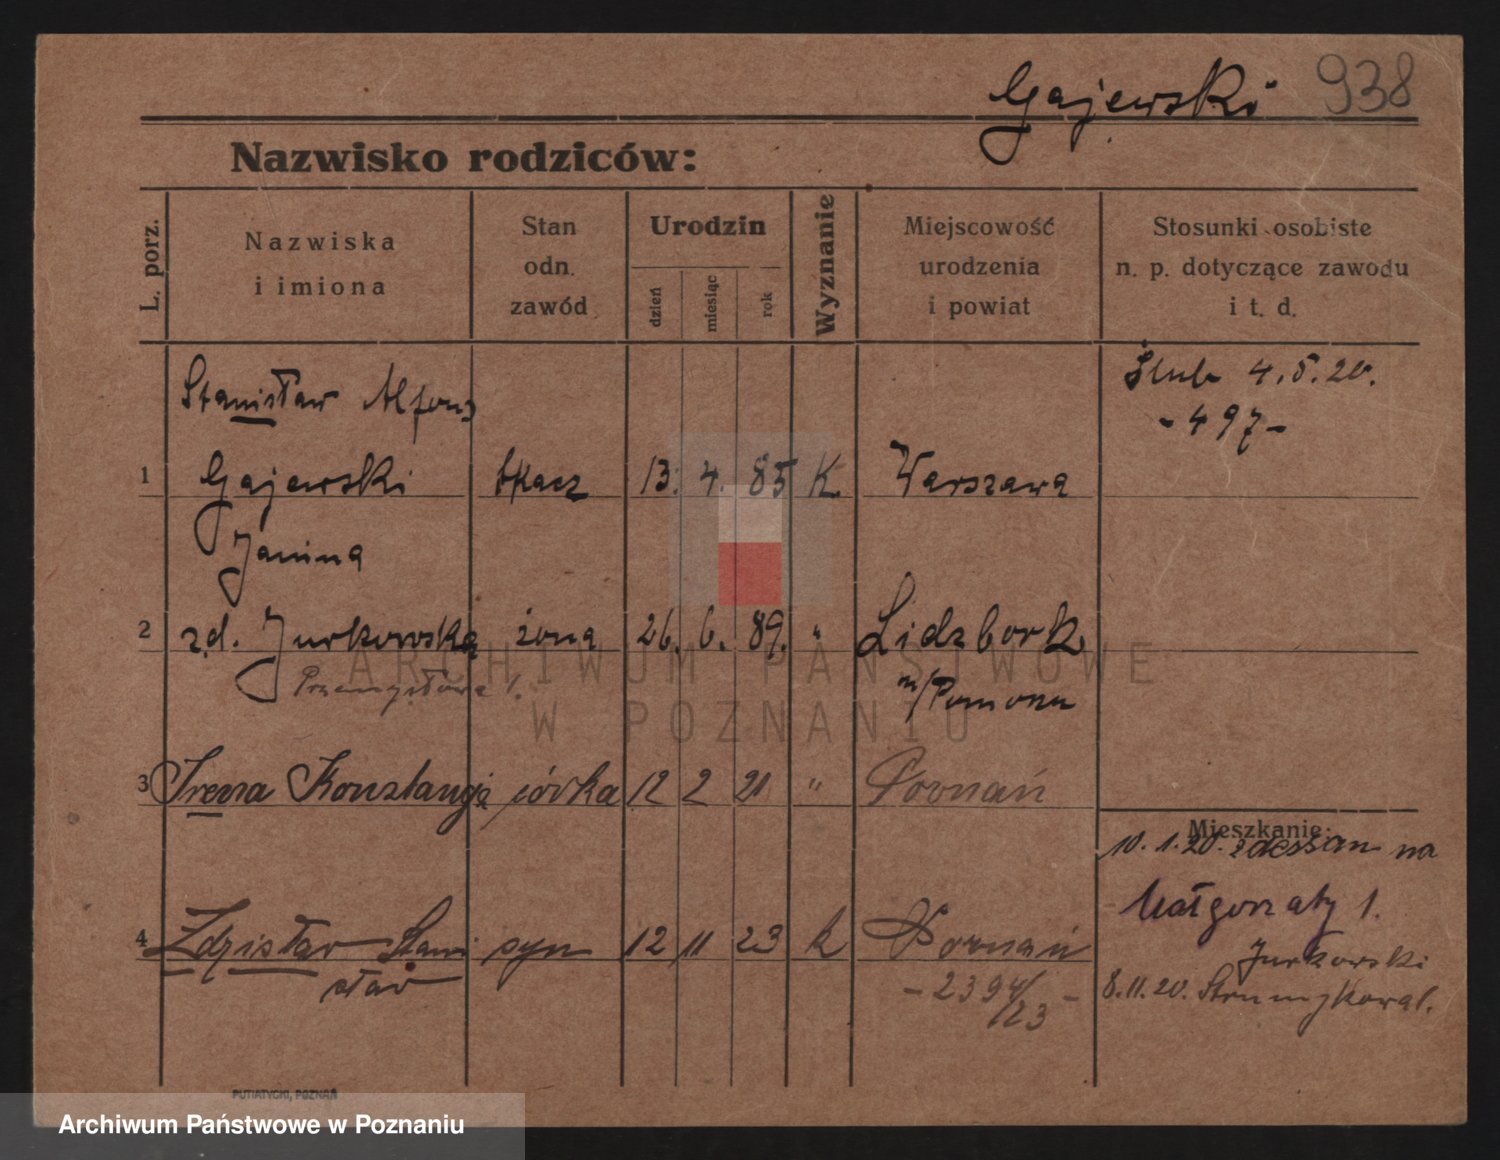 Gajewski 938
Nazwisko rodziców:
L. porz.
Nazwiska
i imiona
Stan
odn.
zawód
Urodzin
dzień
miesiąc
rok
Wyznanie
Miejscowość
urodzenia
i powiat
Stosunki osobiste
n. p. dotyczące zawodu
i t. d.
Stanisław Alfons
Ślub 4.5.20.
- 497 -
1 Gajewski tkacz 13. 4. 85 K. Warszawa
Janina
2 z d. Jurkowska żona 26. 6. 89. " Lidzbork
Przemysłowa 1.
n/Pomorzu
3 Irena Konstancja córka 12 2 21 " Poznań
Mieszkanie:
10. 1. 20. z dessau na
Małgorzaty 1.
4 Zdzisław Stani syn 12 11 23 k Poznań
sław
Jurkowski
- 2394/23 -
8.11.20.
PUTIATYCKI, POZNAŃ
ARCHIWUM PAŃSTWOWE
W POZNANIU
Archiwum Państwowe w Poznaniu